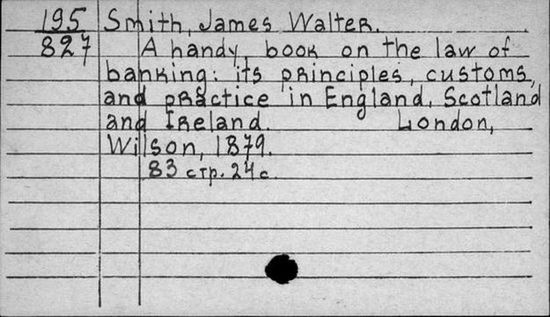 195 Smith, James Walter.
827 A handy book on the law of
banking: its principles, customs,
and practice in England, Scotland
and Ireland. London,
Wilson, 1879.
83 стр. 24 с.